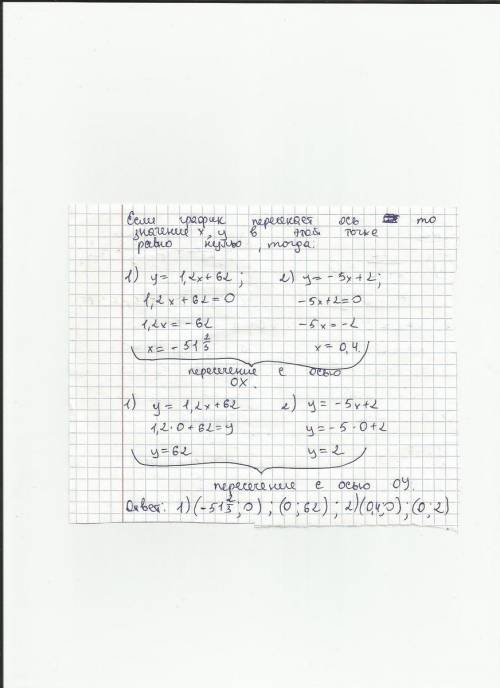 Если график пересекает ось то
значение x, y в этой точке
равно нулю, тогда:
1) y = 1,2x+62; 2) y = -5x+2;
1,2x+62=0 -5x+2=0
1,2x=-62 -5x=-2
x=-51 2/3 x=0,4.
пересечение с осью
OX.
1) y = 1,2x+62 2) y = -5x+2
1,2·0+62=y y=-5·0+2
y=62 y=2
пересечение с осью OY.
Ответ: 1)(-51 2/3;0); (0;62); 2)(0,4;0); (0;2)